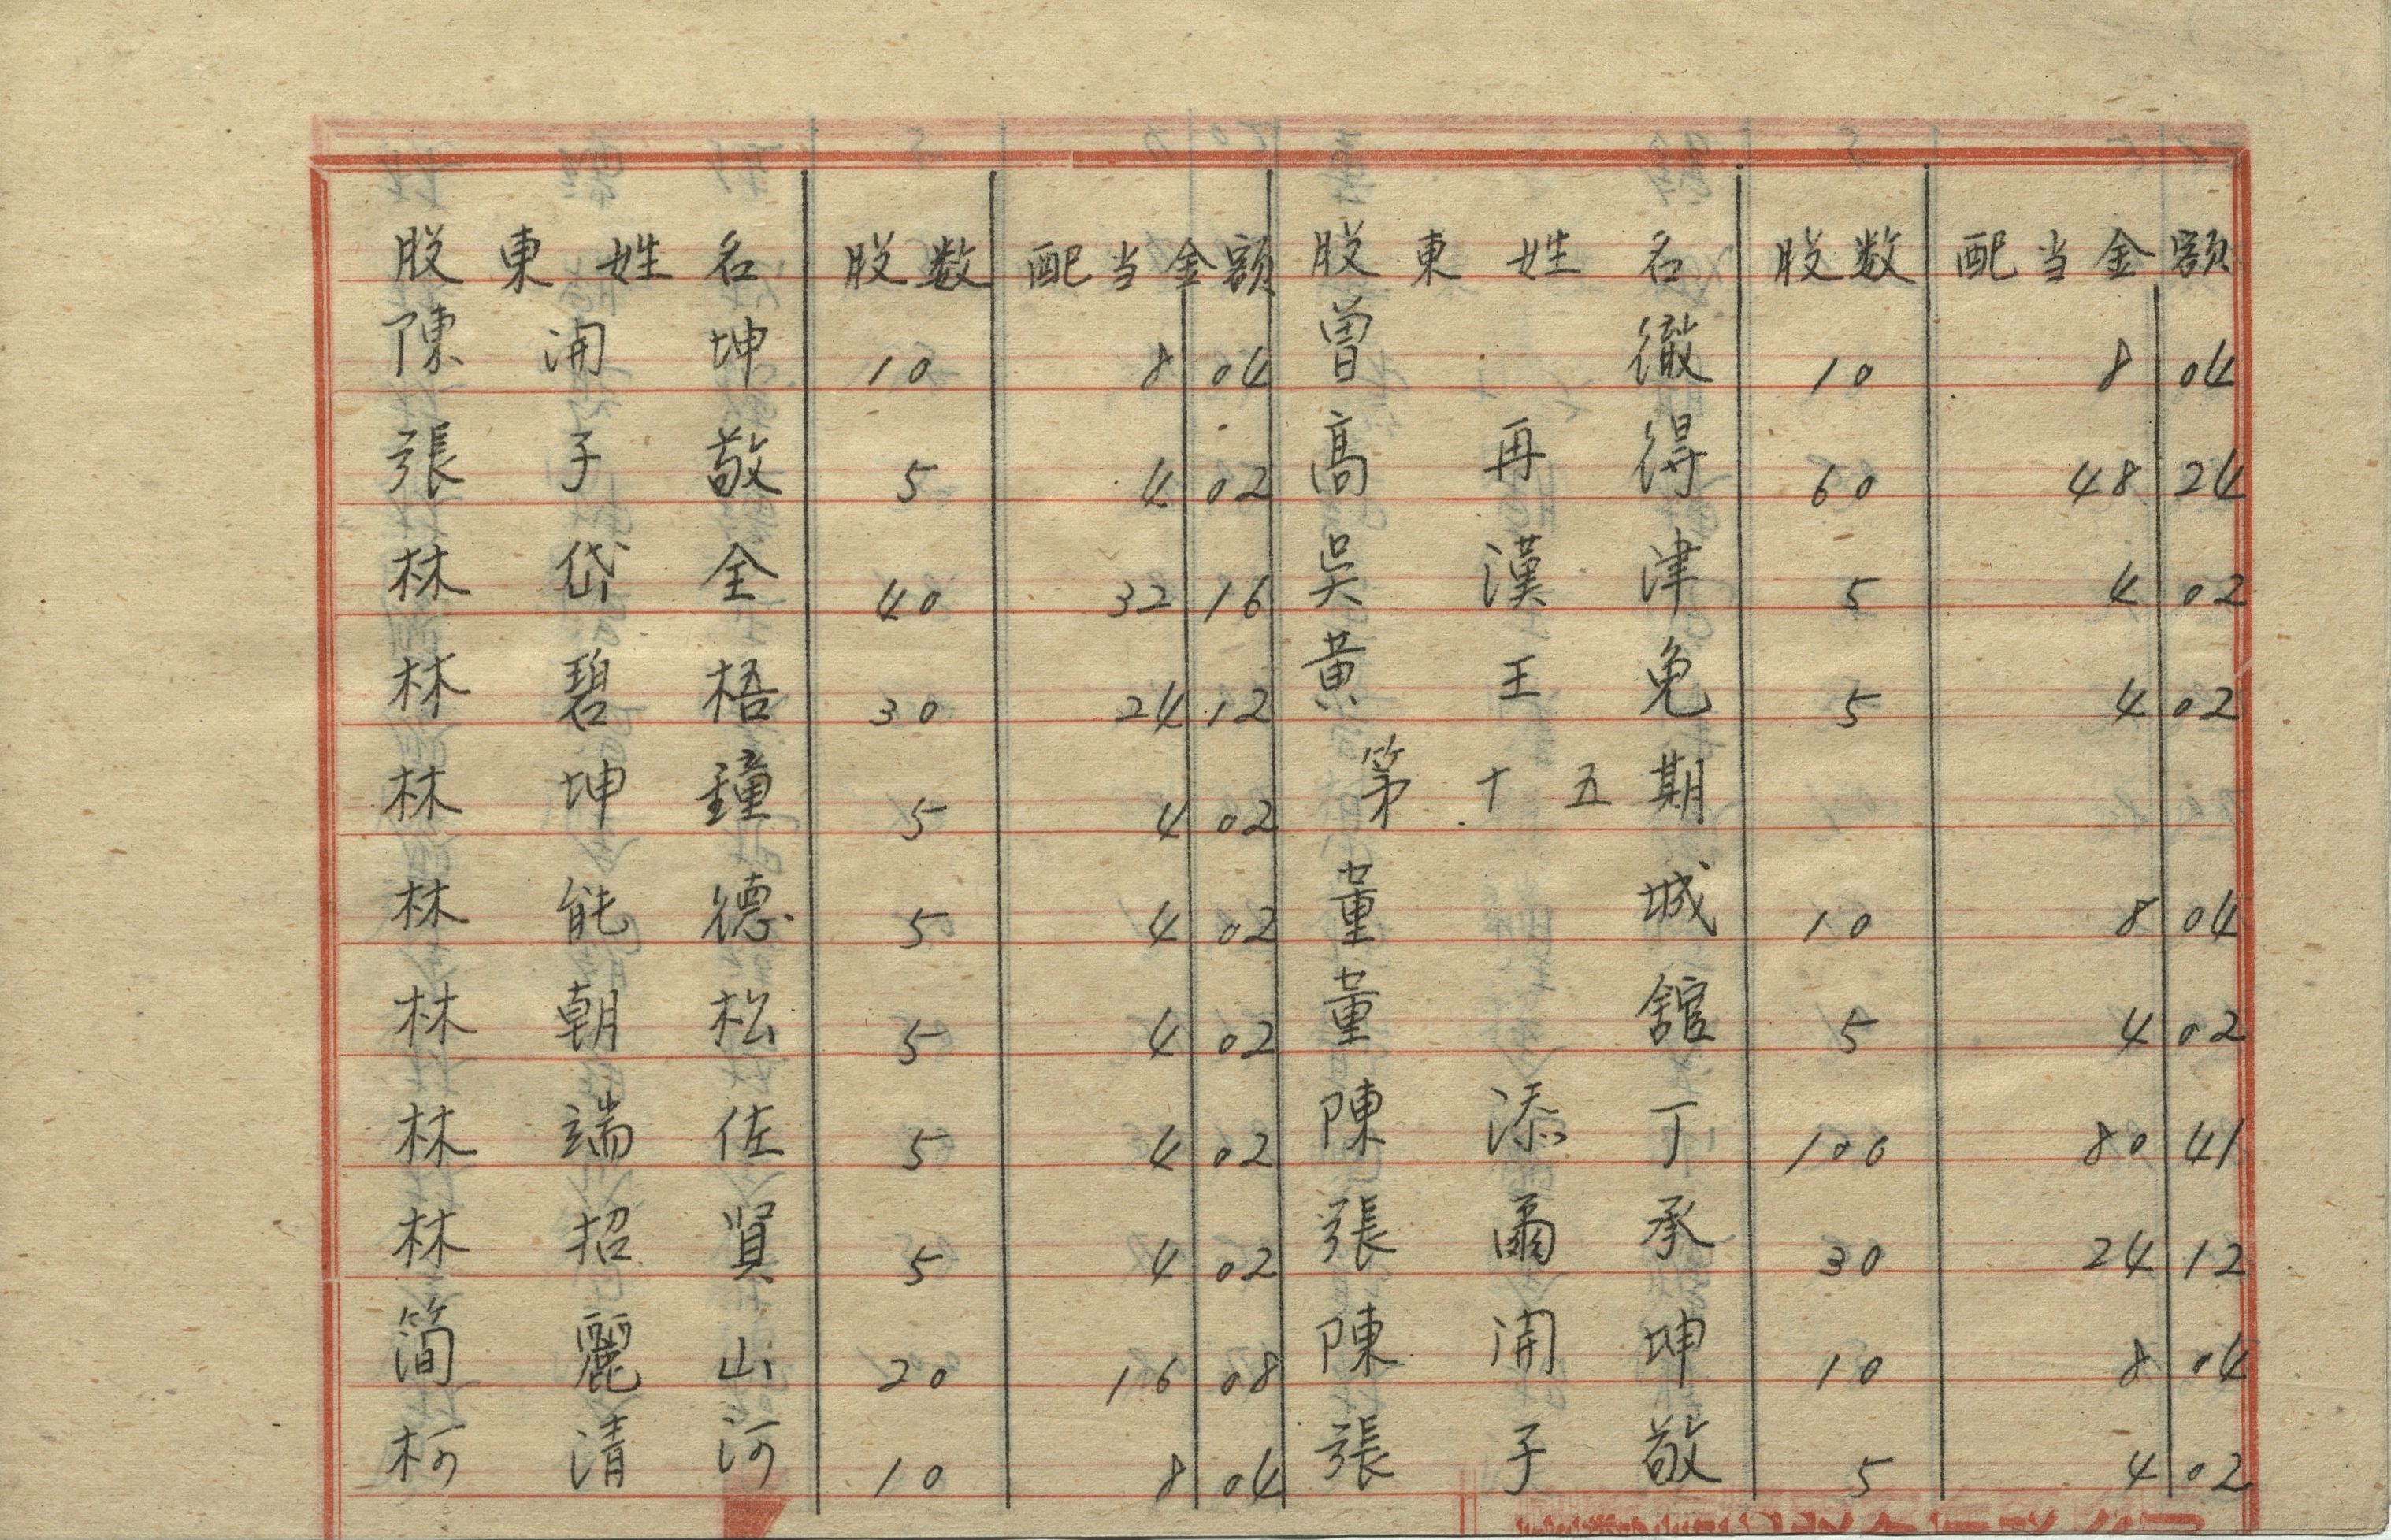 股東姓名 股数 配当金額
陳開坤 10 8 04
張子敬 5 4 02
林岱全 40 32 16
林碧梧 30 24 12
林坤鐘 5 4 02
林能德 5 4 02
林朝松 5 4 02
林端佐 5 4 02
林招賢 5 4 02
简麗山 20 16 08
柯清河 10 8 04
股東姓名 股数 配当金額
曽徹 10 8 04
高再得 60 48 24
吳漢津 5 4 02
黄王免 5 4 02
第十五期
董城 10 8 04
董舘 5 4 02
陳添丁 100 80 41
張爾承 30 24 12
陳開坤 10 8 04
張子敬 5 4 02